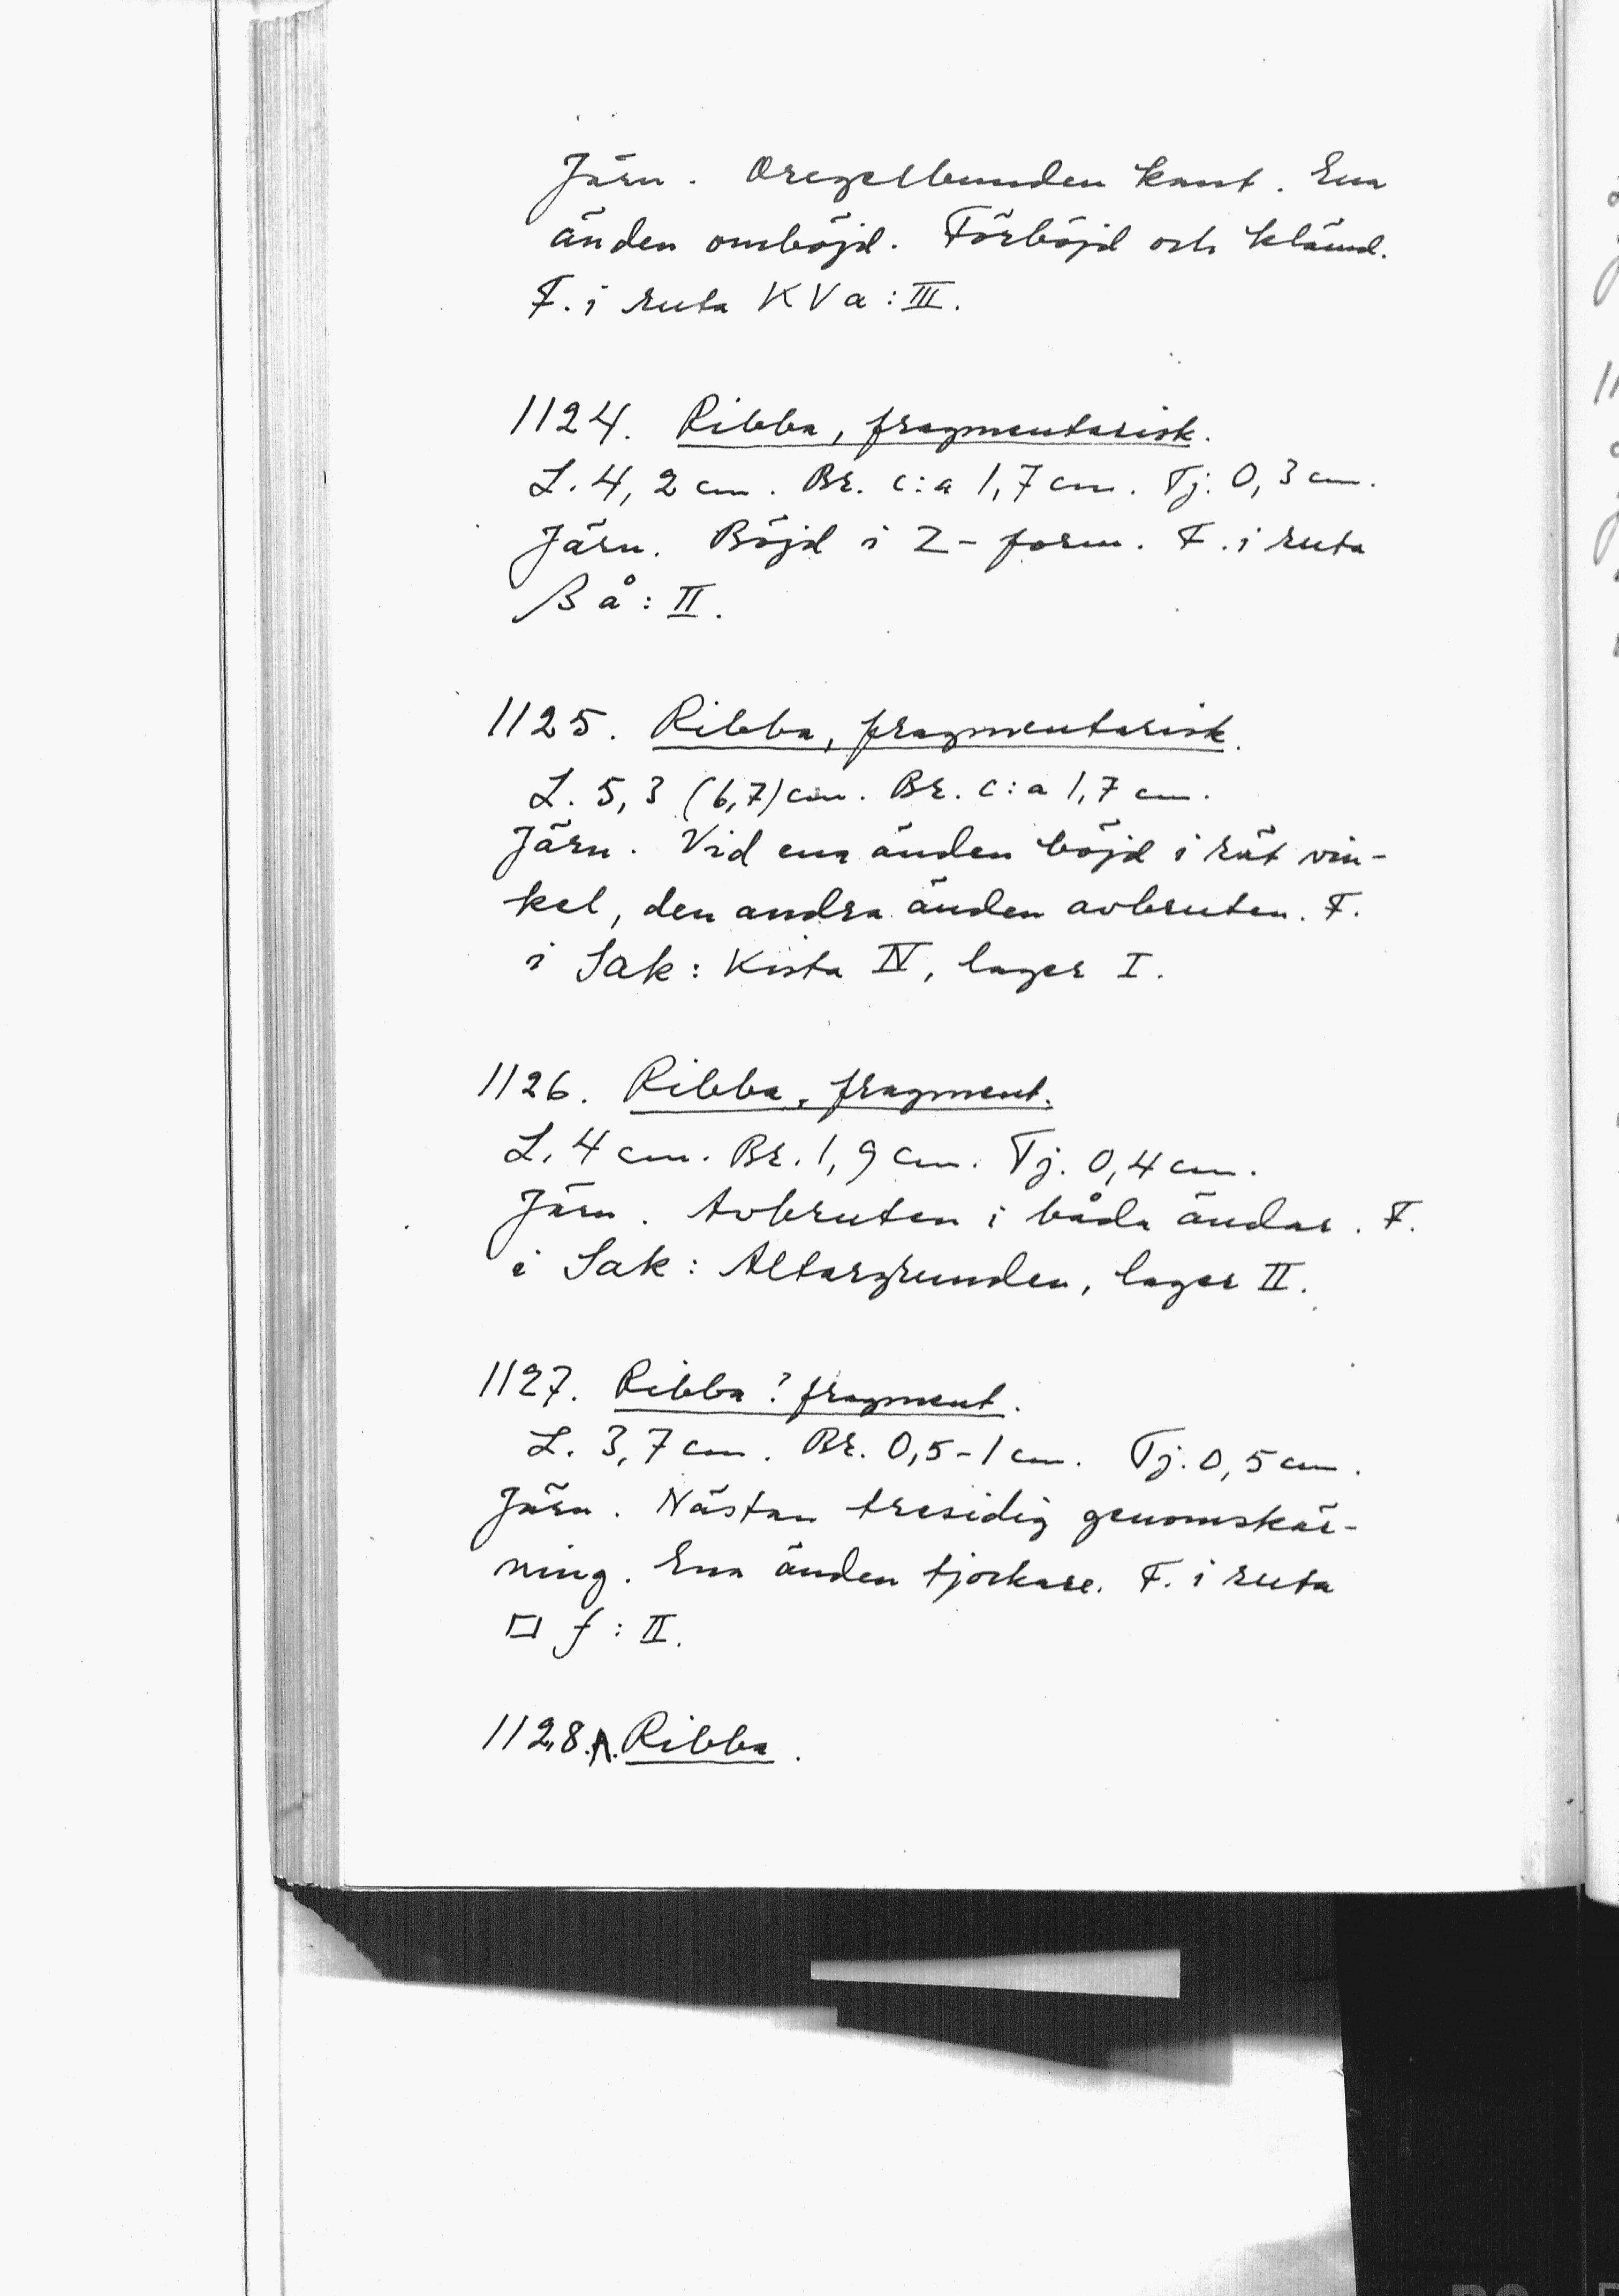 Järn. Oregelbunden kant. Ena
änden omböjd. Förböjd och klämd.
F. i ruta K V a : III.
1124. Ribba, fragmentarisk.
L. 4,2 cm. Br. c:a 1,7 cm. Tj. 0,3 cm.
Järn. Böjd i Z-form. F. i ruta
β å : II.
1125. Ribba, fragmentarisk.
L. 5,3 (6,7) cm. Br. c:a 1,7 cm.
Järn. Vid ena änden böjd i rät vin-
kel, den andra änden avbruten. F.
i Sak: Kista IV, lager I.
1126. Ribba, fragment.
L. 4 cm. Br. 1,9 cm. Tj. 0,4 cm.
Järn. Avbruten i båda ändar. F.
i Sak: Altargrunden, lager II.
1127. Ribba? fragment.
L. 3,7 cm. Br. 0,5-1 cm. Tj. 0,5 cm.
Järn. Nästan tresidig genomskär-
ning. Ena änden tjockare. F. i ruta
□ f : II.
1128.A. Ribba.